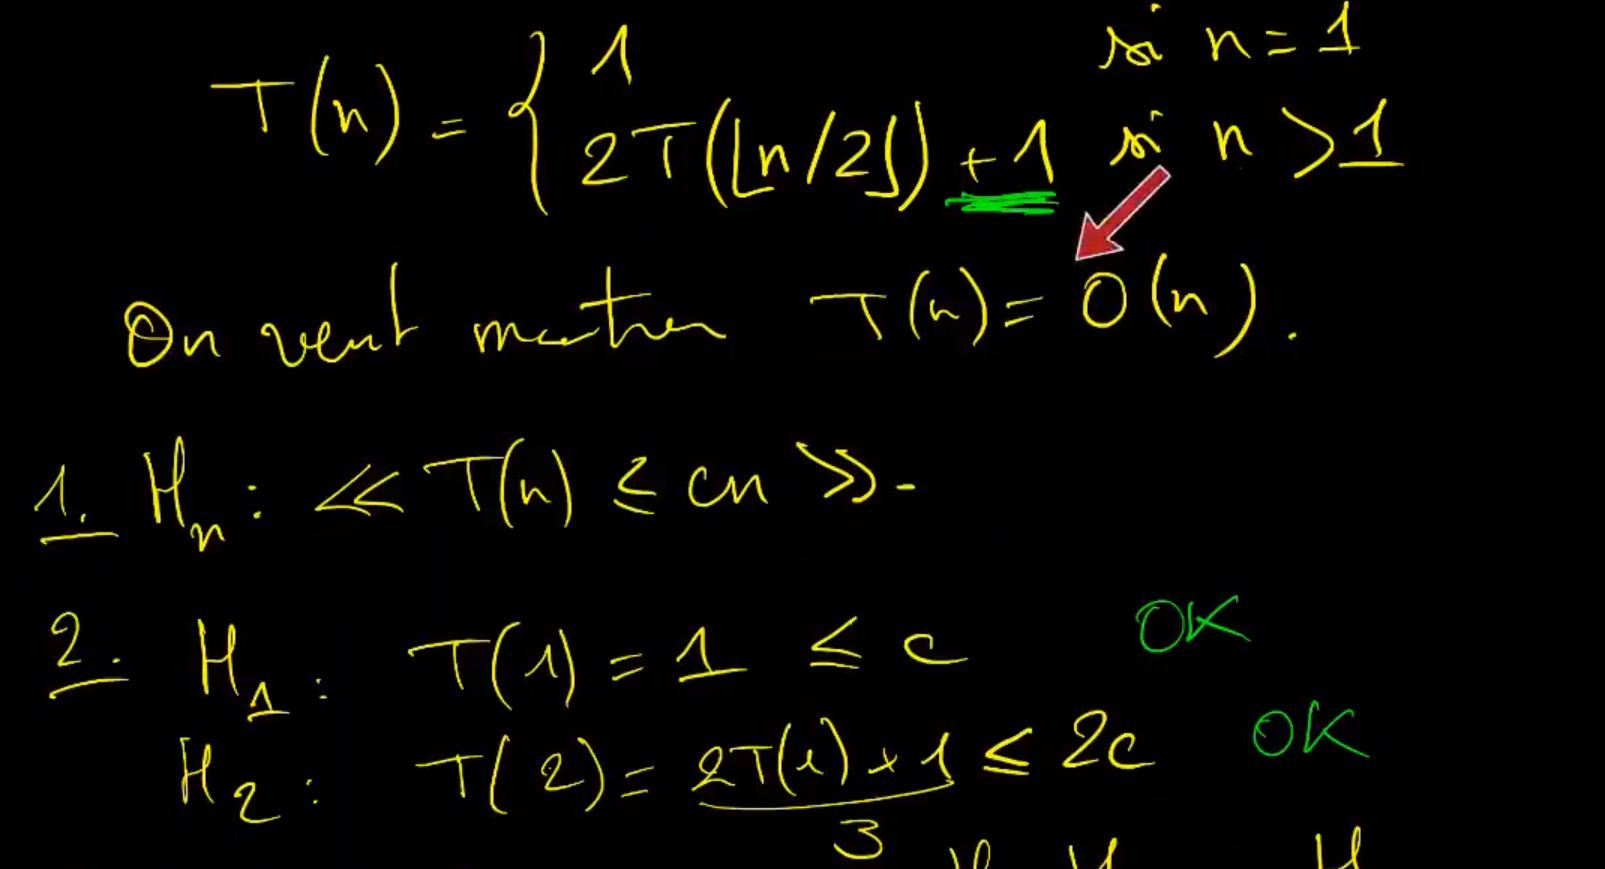 T(n) = { 1 si n = 1
2T(⌊n/2⌋) + 1 si n > 1
On veut montrer T(n) = O(n).
1. Hn : << T(n) ≤ cn >>.
2. H1 : T(1) = 1 ≤ c OK
H2 : T(2) = 2T(1) + 1 ≤ 2c OK
3